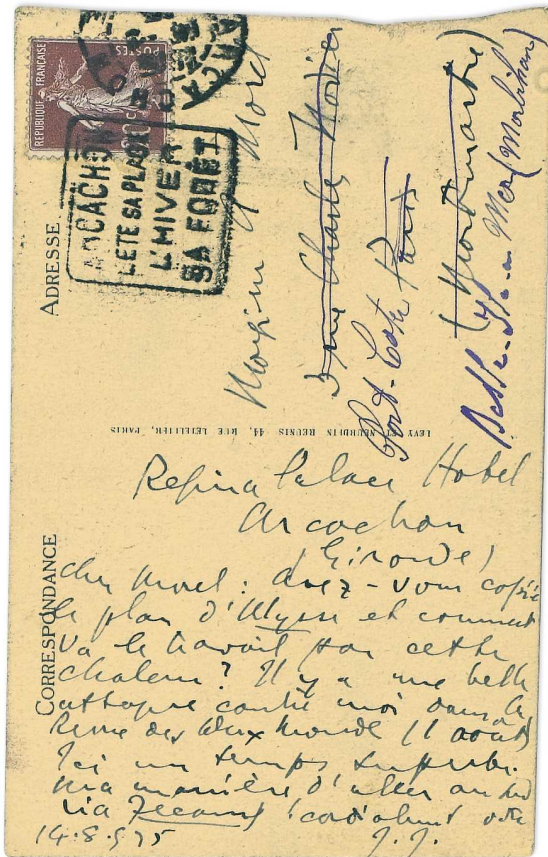 RÉPUBLIQUE FRANÇAISE
POSTES
20 c
ARCACHON
L'ÉTÉ SA PLAGE
L'HIVER
SA FORÊT
ADRESSE
Monsieur A Morel
3 rue Charles Nodier
Paris
(Montmartre)
Port-Coton
Belle-Isle-en-Mer (Morbihan)
LÉVY ET NEURDEIN RÉUNIS, 44, RUE LETELLIER, PARIS
CORRESPONDANCE
Regina Palace Hotel
Arcachon
(Gironde)
Cher Morel: Avez-vous copié
le plan d'Ulysse et comment
va le travail par cette
chaleur? Il y a une belle
attaque contre moi dans la
Revue des Deux Mondes (1 août)
Ici un temps superbe.
Ma manière d'aller au sud
via Fécamp! Cordialement votre
J.J.
14.8.925